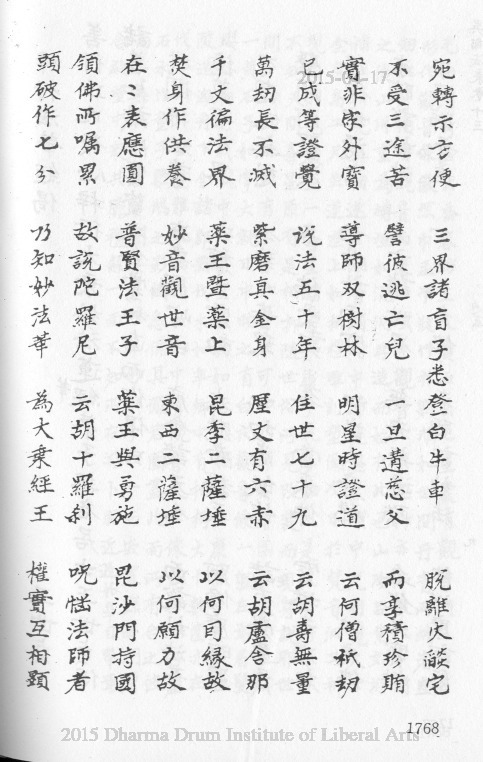 宛轉示方便　三界諸盲子　悉登白牛車　脫離火燄宅
不受三途苦　譬彼逃亡兒　一旦遘慈父　而享積珍賄
實非家外寶　導師双樹林　明星時證道　云何僧祇劫
已成等證覺　說法五十年　住世七十九　云胡壽無量
萬劫長不滅　紫磨真金身　歷丈有六赤　云胡盧舍那
千丈徧法界　藥王暨藥上　昆季二薩埵　以何因緣故
焚身作供養　妙音觀世音　東西二薩埵　以何願力故
在在表應圓　普賢法王子　藥王與勇施　毘沙門持國
領佛所囑累　故說陀羅尼　云胡十羅剎　呪惱法師者
頭破作七分　乃知妙法華　為大乘經王　權實互相顯
2015-04-17
1768
2015 Dharma Drum Institute of Liberal Arts